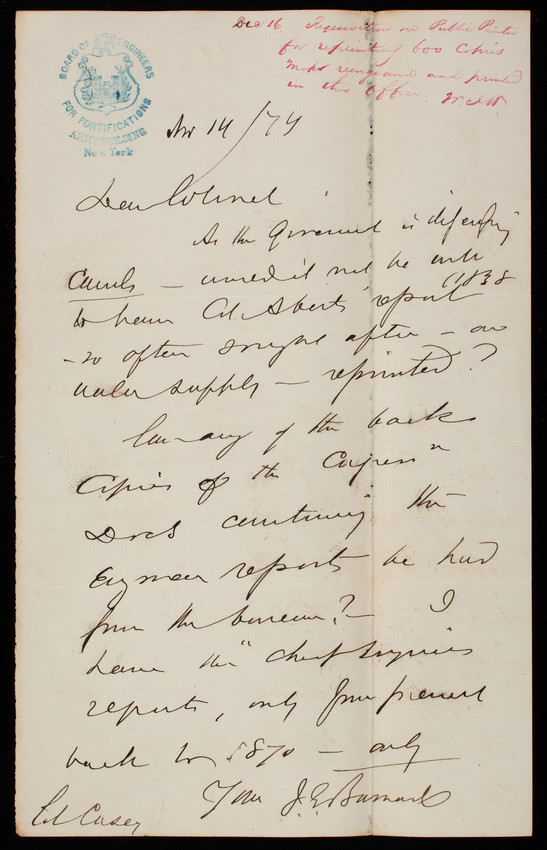 Dec 16. Requisition on Public Printer
for reprinting 600 copies
Maps reengraved and printed
in this Office. 
BOARD OF ENGINEERS
FOR FORTIFICATIONS
ARMY BUILDING
New York
Nov 14/74
Dear Colonel
As the Government is discussing
Canals — would it not be well
to have Col Abert's report (1838
– so often sought after – on
water supply – reprinted?
Can any of the back
Copies of the Congress'n
Docs containing the
Engineer reports be had
from the bureau? – I
have the "Chief Engineers
reports, only from present
back to 1870 – only
Yours J. G. Barnard
Col Casey